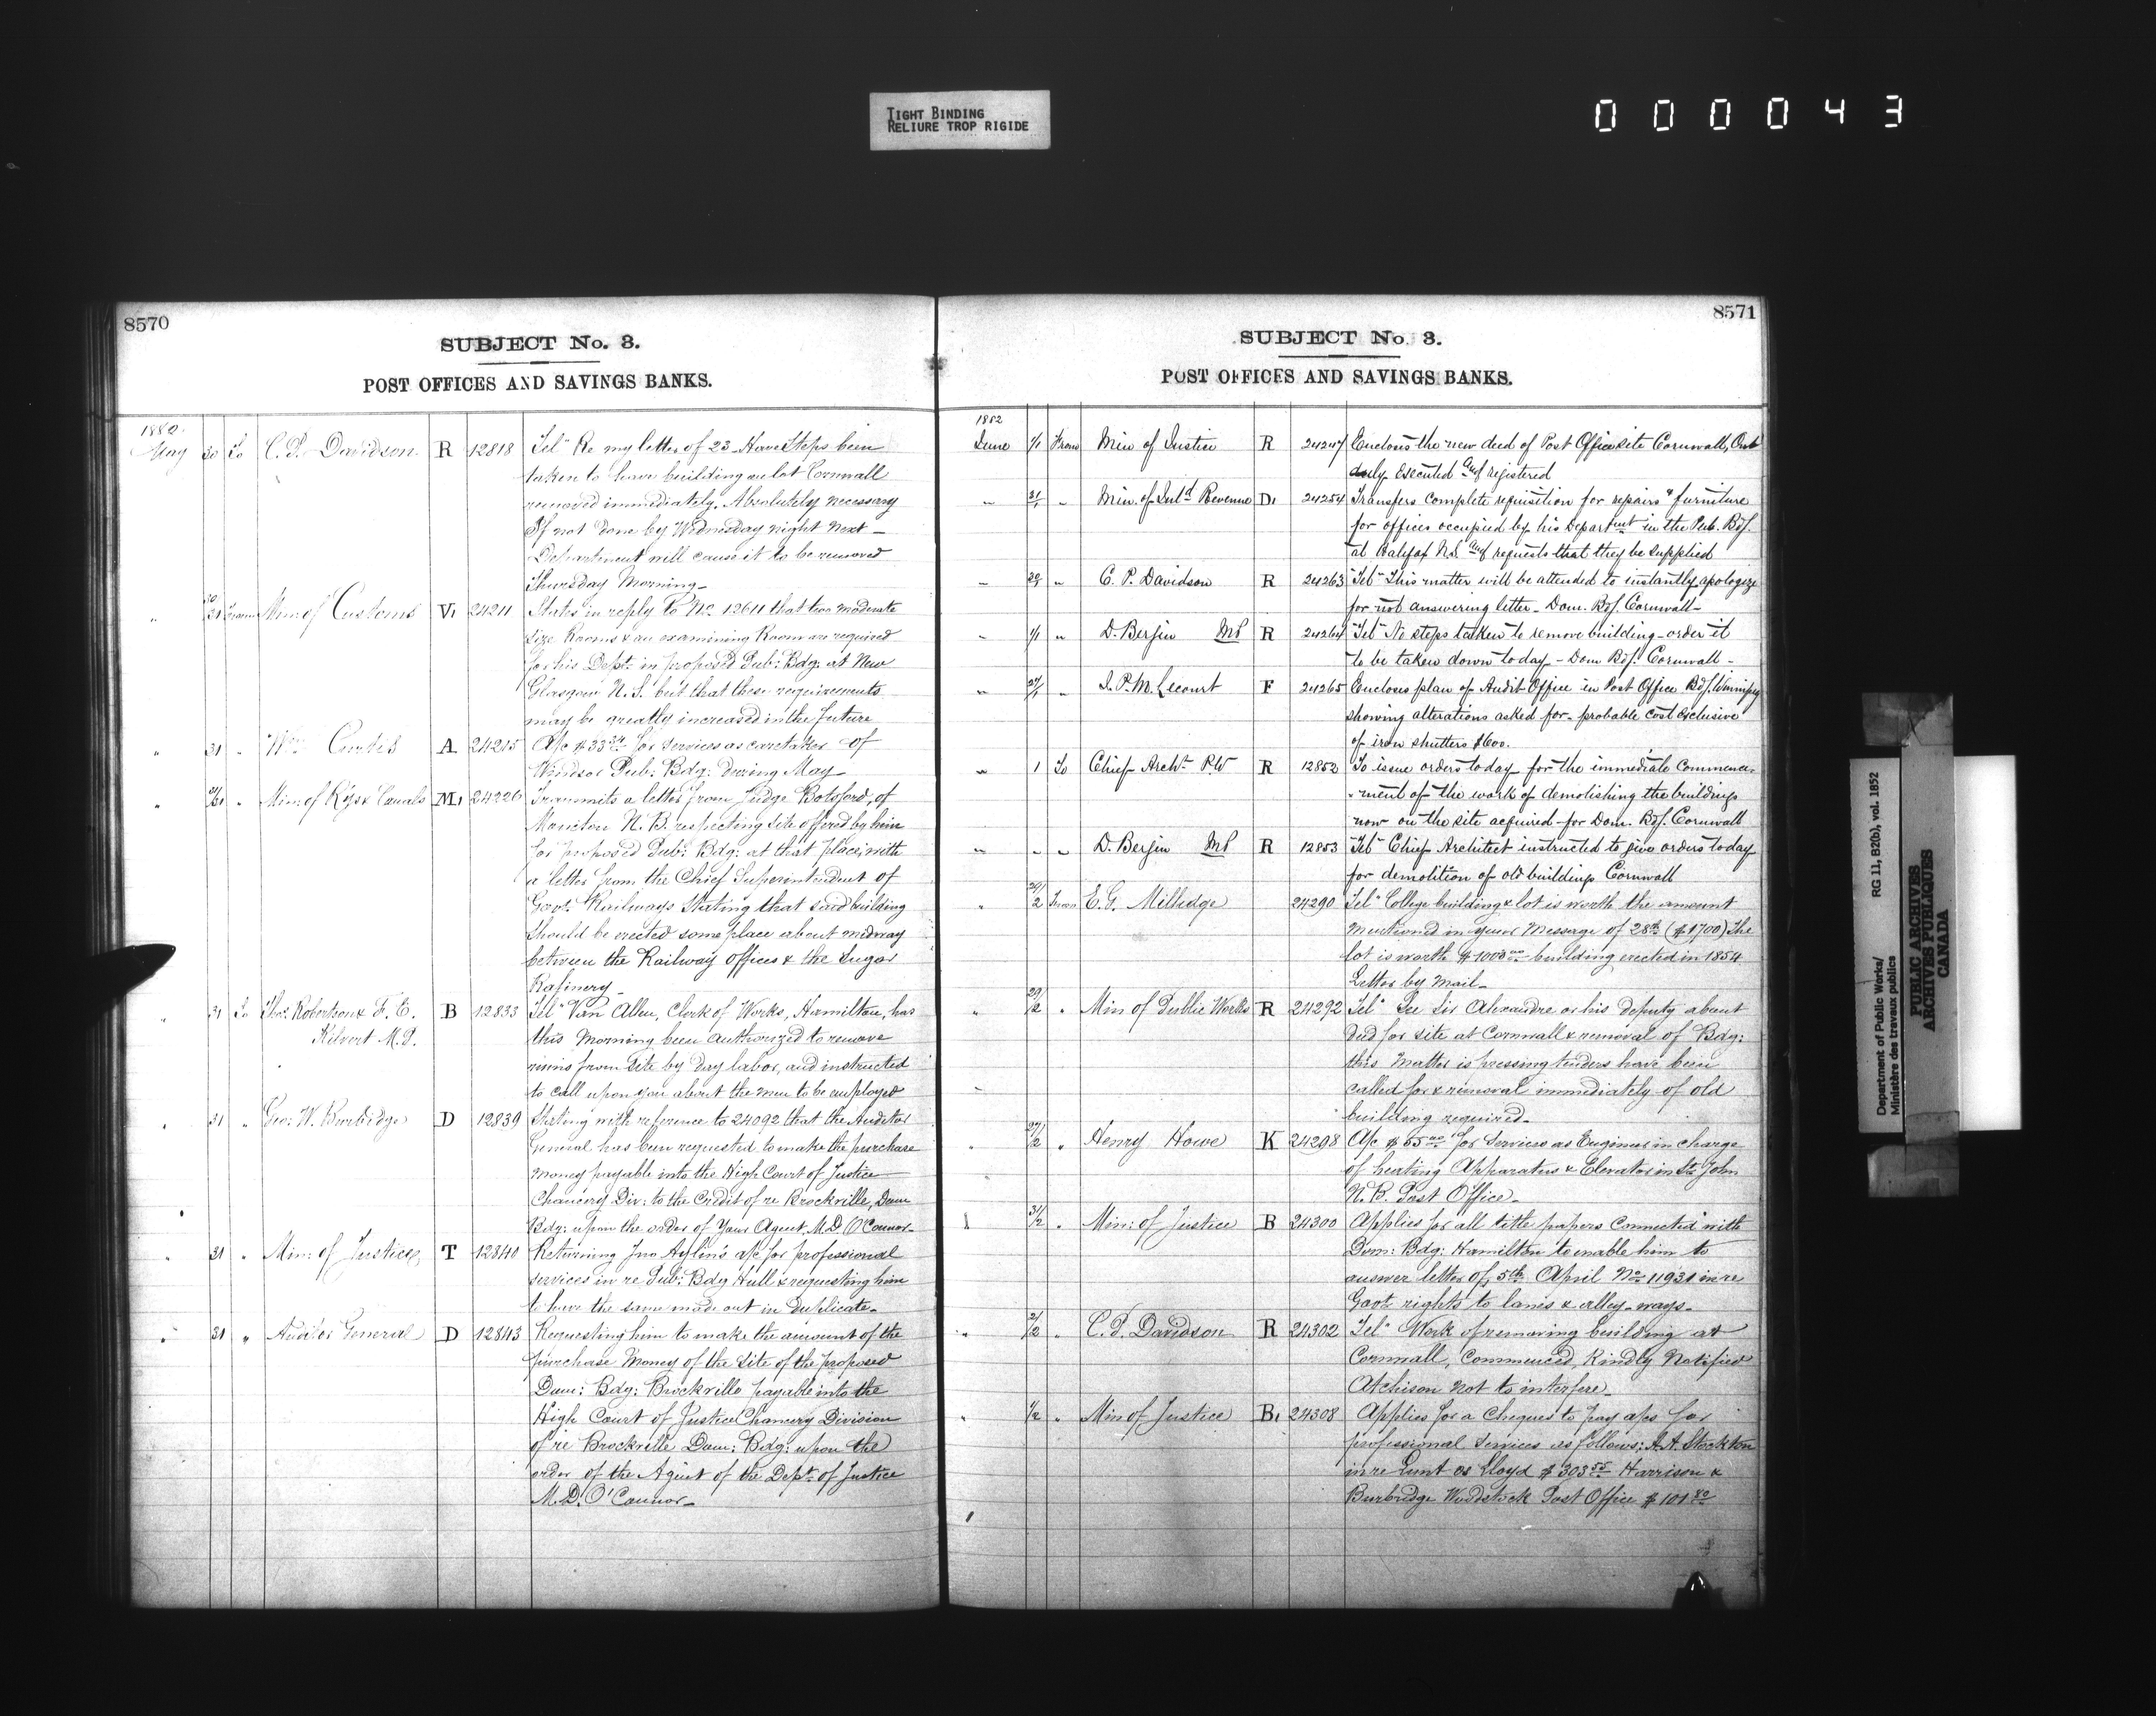 TIGHT BINDING
RELIURE TROP RIGIDE
000043
8570
SUBJECT No. 3.
POST OFFICES AND SAVINGS BANKS.
1882
May 30 To C. P. Davidson R 12818 Tel" Re my letter of 23 - Have Steps been
taken to have building on lot Cornwall
removed immediately. Absolutely necessary
If not done by Wednesday night next -
Department will cause it to be removed
Thursday Morning -
" 30/31 From Min: of Customs V1 24211 States in reply to No 12611 that two moderate
size Rooms & an examining Room are required
for his Dept. in proposed Pub: Bdg: at New
Glasgow N.S. but that these requirements
may be greatly increased in the future
" 31 " Wm Curtis A 24215 A/c $33 for services as caretaker of
Windsor Pub: Bdg: during May
" " Min: of Rys & Canals M1 24226 Transmits a letter from Judge Botsford, of
Moncton N.B. respecting site offered by him
for proposed Pub: Bdg: at that place, with
a letter from the Chief Superintendent of
Govt. Railways Stating that said building
should be erected some place about midway
between the Railway Offices & the Sugar
Rafinery -
" 31 To Thos. Robertson & F. E. B 12833 Tel" Van Allen, Clerk of Works, Hamilton, has
Kilvert M.P. this Morning been authorized to remove
ruins from site by day labor, and instructed
to call upon you about the men to be employed
" 31 " Geo: W. Burbidge D 12839 Stating with reference to 24092 that the Auditor
General has been requested to make the purchase
money payable into the High Court of Justice
Chancery Div: to the credit of re Brockville, Dom
Bdg: upon the order of Your Agent, M.D. O'Connor -
" 31 " Min: of Justice T 12840 Returning Jno Aylin's a/c for professional
services in re Pub: Bdg Hull & requesting him
to have the same made out in duplicate -
" 31 " Auditor General D 12843 Requesting him to make the amount of the
purchase Money of the site of the proposed
Dom: Bdg: Brockville payable into the
High Court of Justice Chancery Division
of re Brockville Dom: Bdg: upon the
order of the Agent of the Dept. of Justice
M.D. O'Connor -
8571
SUBJECT No. 3.
POST OFFICES AND SAVINGS BANKS.
1882
June 1/1 From Min of Justice R 24247 Encloses the new deed of Post Office site Cornwall, Ont
duly executed and registered
" 31/1 " Min. of Inld Revenue D1 24254 Transfers complete requisition for repairs & furniture
for offices occupied by his Department in the Pub. Bdg.
at Halifax N.S. and requests that they be supplied
" " C. P. Davidson R 24263 "Tel" This matter will be attended to instantly, apologize
for not answering letter - Dom. Bdg. Cornwall -
" 1/1 " D. Bergin MP R 24264 "Tel" No steps taken to remove building - order it
to be taken down today - Dom Bdg. Cornwall -
" 27/1 " J. P. M. Lecourt F 24265 Encloses plan of Audit Office in Post Office Bdg. Winnipeg
showing alterations asked for - probable cost exclusive
of iron shutters $600.
" 1 To Chief Archt. P.W R 12852 To issue orders today for the immediate commence-
-ment of the work of demolishing the buildings
now on the site acquired for Dom. Bdg. Cornwall
" " " D. Bergin MP R 12853 "Tel" Chief Architect instructed to give orders today
for demolition of old buildings Cornwall
" 29/2 From E. G. Millidge 24290 Tel" College building & lot is worth the amount
mentioned in your Message of 28th ($1700) The
lot is worth $1000.00 - building erected in 1854
Letter by Mail -
" 29/2 " Min of Public Works R 24292 Tel" See Sir Alexandre or his Deputy about
Deed for site at Cornwall & removal of Bdg:
this Matter is pressing tenders have been
called for & removal immediately of old
building required -
" 27/2 " Henry Howe K 24298 A/c $55.00 for services as Engineer in charge
of heating Apparatus & Elevator in St. John
N.B. Post Office -
31/2 " Min: of Justice B 24300 Applies for all title papers connected with
Dom: Bdg: Hamilton to enable him to
answer letter of 5th April No 11931 in re
Govt. rights to lanes & alley-ways -
" 2/2 " C. P. Davidson R 24302 Tel" Work of removing building at
Cornwall, Commenced, Kindly Notified
Atchison not to interfere -
" 1/2 " Min of Justice B1 24308 Applies for a Cheque to pay a/cs for
professional services as follows: A. A. Stockton
in re Lunt or Lloyd $303.55 Harrison &
Burbridge Woodstock Post Office $101.80
Department of Public Works/
Ministère des travaux publics
RG 11, B2(b), vol. 1852
PUBLIC ARCHIVES
ARCHIVES PUBLIQUES
CANADA